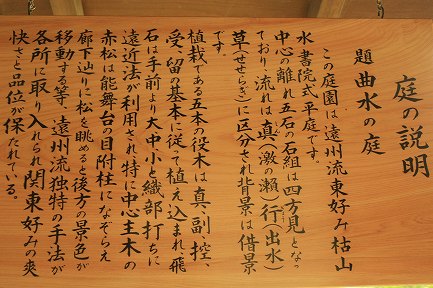 庭の説明
題 曲水の庭
この庭園は、遠州流東好み枯山
水書院式平庭です。
中心の離れ五石の石組は四方見となっ
ており、流れは真(激の瀬)行(出水)
草(せせらぎ)に区分され背景は借景
です。
植栽である五本の役木は真、副、控、
受、留の基本に従って植え込まれ飛
石は手前より大中小と織部打ちに
遠近法が利用され特に中心主木の
赤松は能舞台の目附柱になぞらえ
廊下辺りに松を眺めると後方の景色が
移動する等、遠州流独特の手法が
各所に取り入れられ関東好みの爽
快さと品位が保たれている。